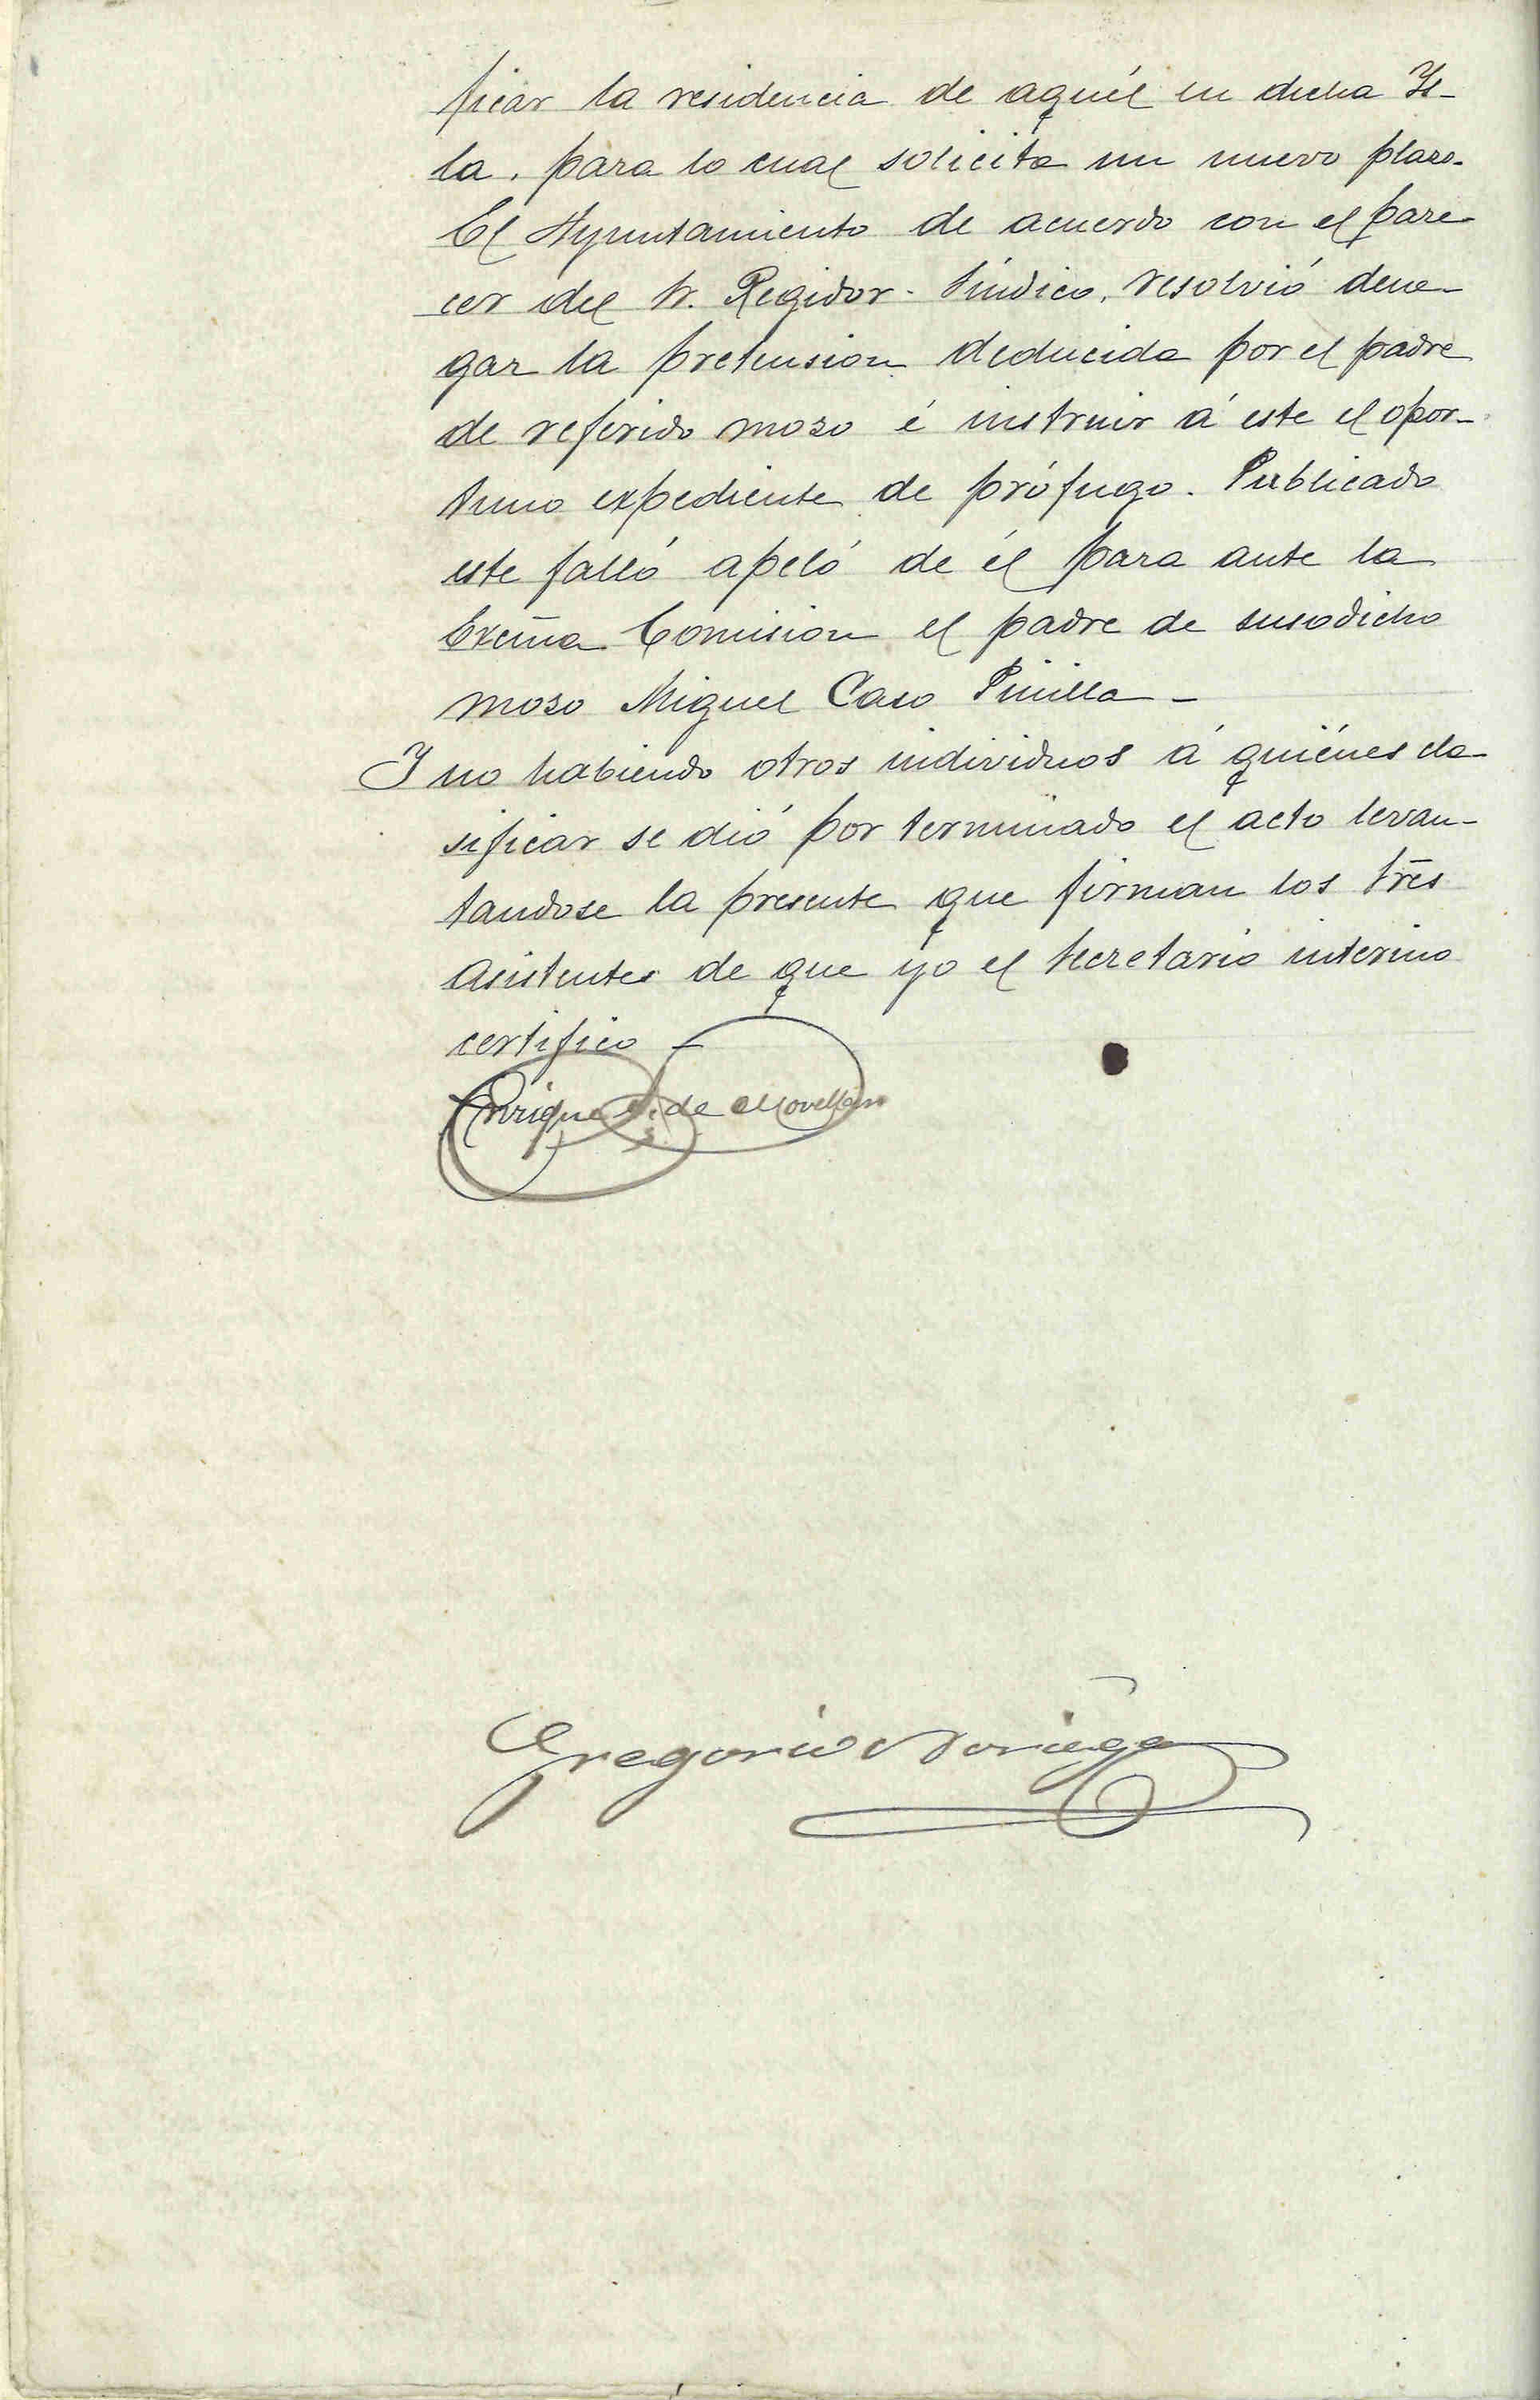 ficar la residencia de aquél en dicha Is-
la, para lo cual solicita un nuevo plazo.
El Ayuntamiento de acuerdo con el pare-
cer del Sr. Regidor-Síndico, resolvió dene-
gar la pretension deducida por el padre
de referido mozo é instruir á este el opor-
tuno expediente de prófugo. Publicado
este falló apeló de él para ante la
Excma Comision el padre de susodicho
mozo Miguel Caso Pinilla-
Y no habiendo otros individuos á quiénes cla-
sificar se dió por terminado el acto levan-
tandose la presente que firman los Sres
asistentes de que yo el Secretario interino
certifico -
Enrique de Movellan
Gregorio Noriega